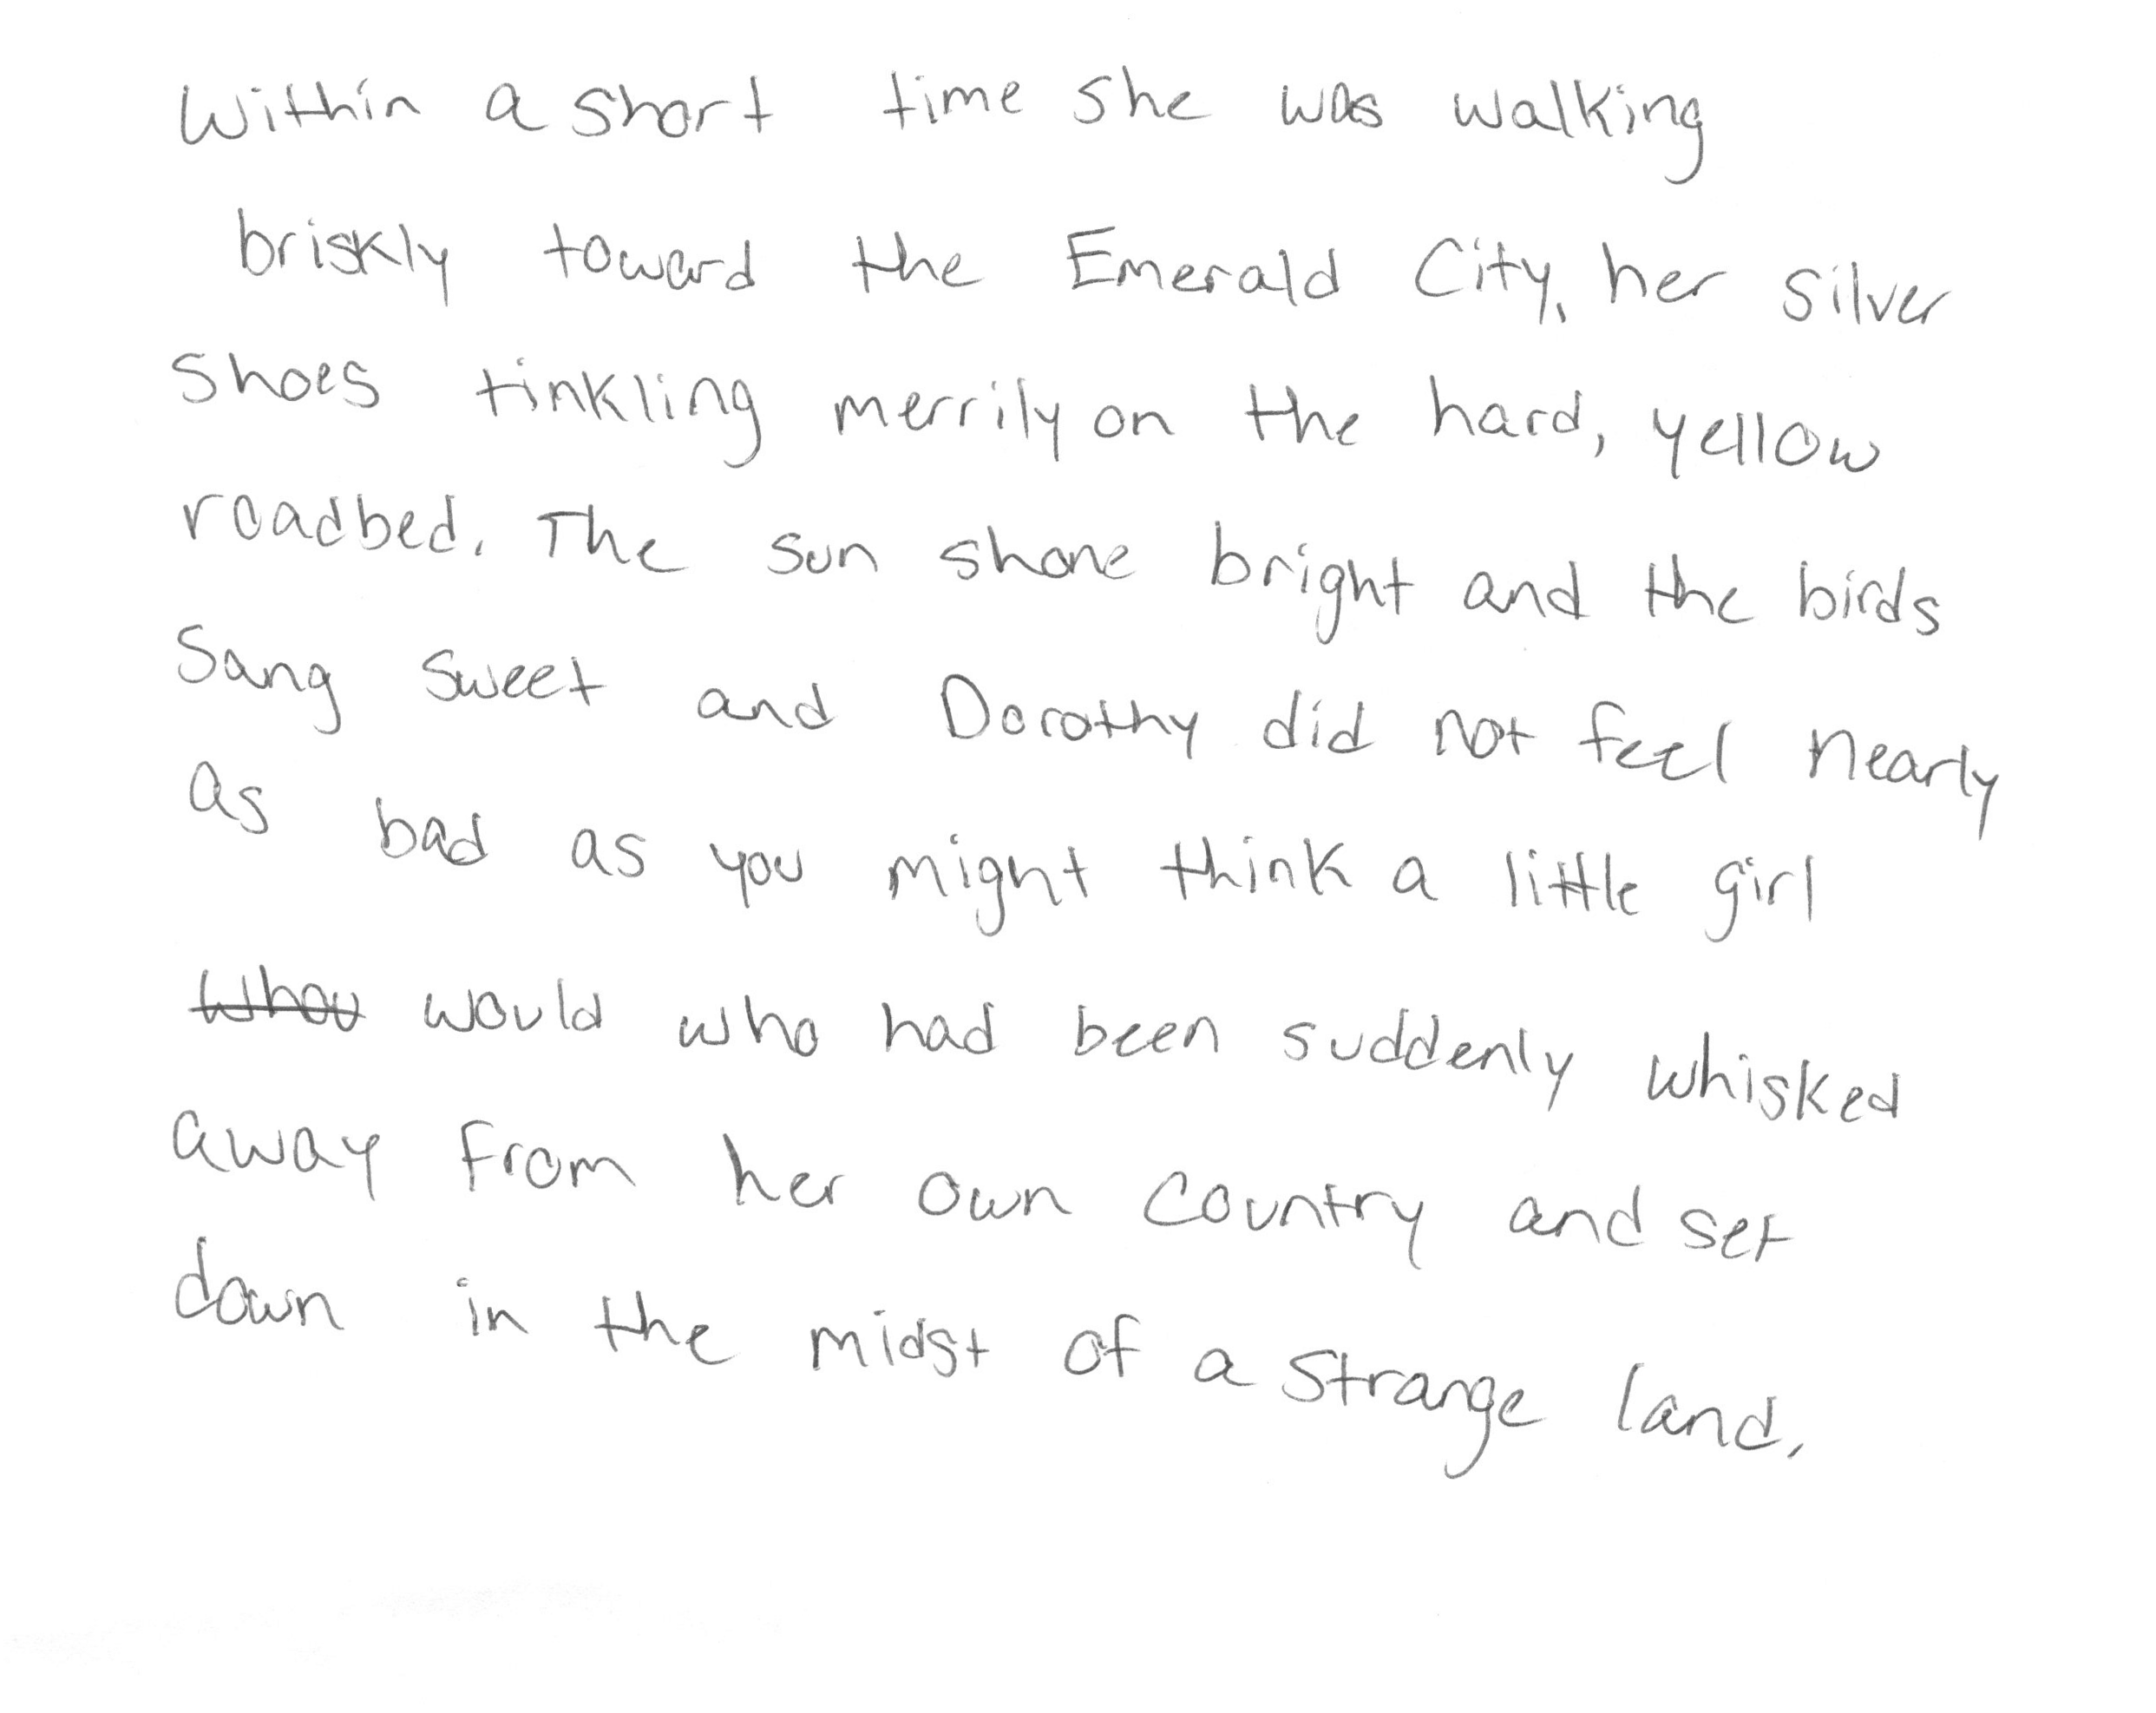 Within a short time she was walking
briskly toward the Emerald City, her silver
shoes tinkling merrily on the hard, yellow
roadbed. The sun shone bright and the birds
sang sweet and Dorothy did not feel nearly
as bad as you might think a little girl
would who had been suddenly whisked
away from her own country and set
down in the midst of a strange land.